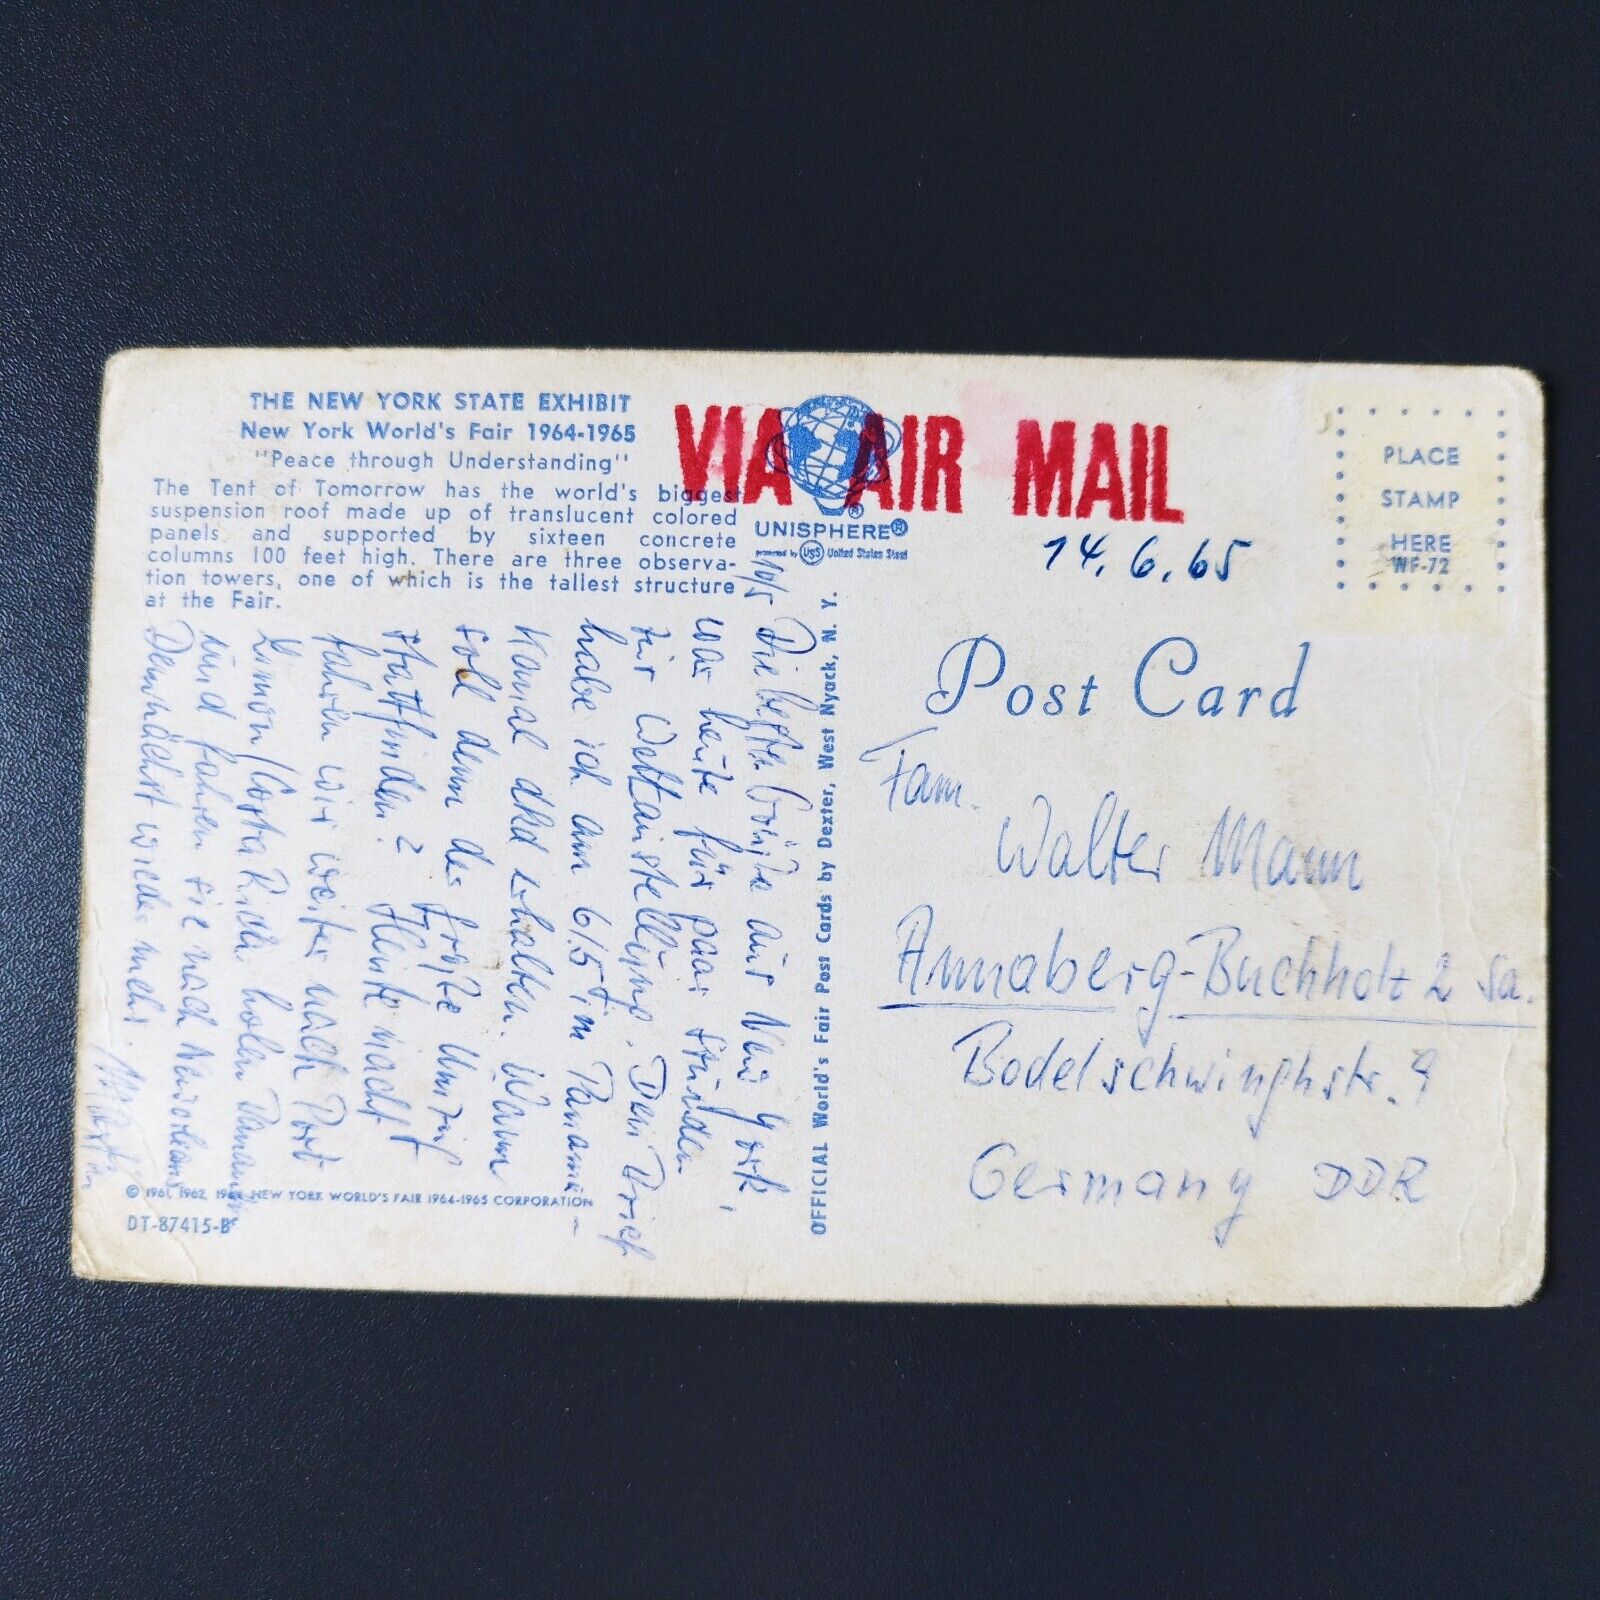 THE NEW YORK STATE EXHIBIT
New York World's Fair 1964-1965
"Peace through Understanding"
The Tent of Tomorrow has the world's biggest
suspension roof made up of translucent colored
panels and supported by sixteen concrete
columns 100 feet high. There are three observa-
tion towers, one of which is the tallest structure
at the Fair.
VIA AIR MAIL
UNISPHERE®
presented by USS United States Steel
14.6.65
PLACE
STAMP
HERE
WF-72
Post Card
Fam.
Walter Mann
Annaberg-Buchholz 2 Sa.
Bodelschwinghstr. 9
Germany DDR
OFFICIAL World's Fair Post Cards by Dexter, West Nyack, N. Y.
10/5
Die besten Grüße aus New York,
war heute für paar Stunden
zur Weltausstellung. Den Brief
habe ich am 6/5 in Panama-
Kanal dkd erhalten. Wann
soll denn der große Umzug
stattfinden? Heute nacht
fahren wir weiter nach Port
Limon/Costa Rica holen Bananen
und fahren sie nach
Demnächst wieder mehr.
© 1961, 1962, NEW YORK WORLD'S FAIR 1964-1965 CORPORATION
DT-87415-B